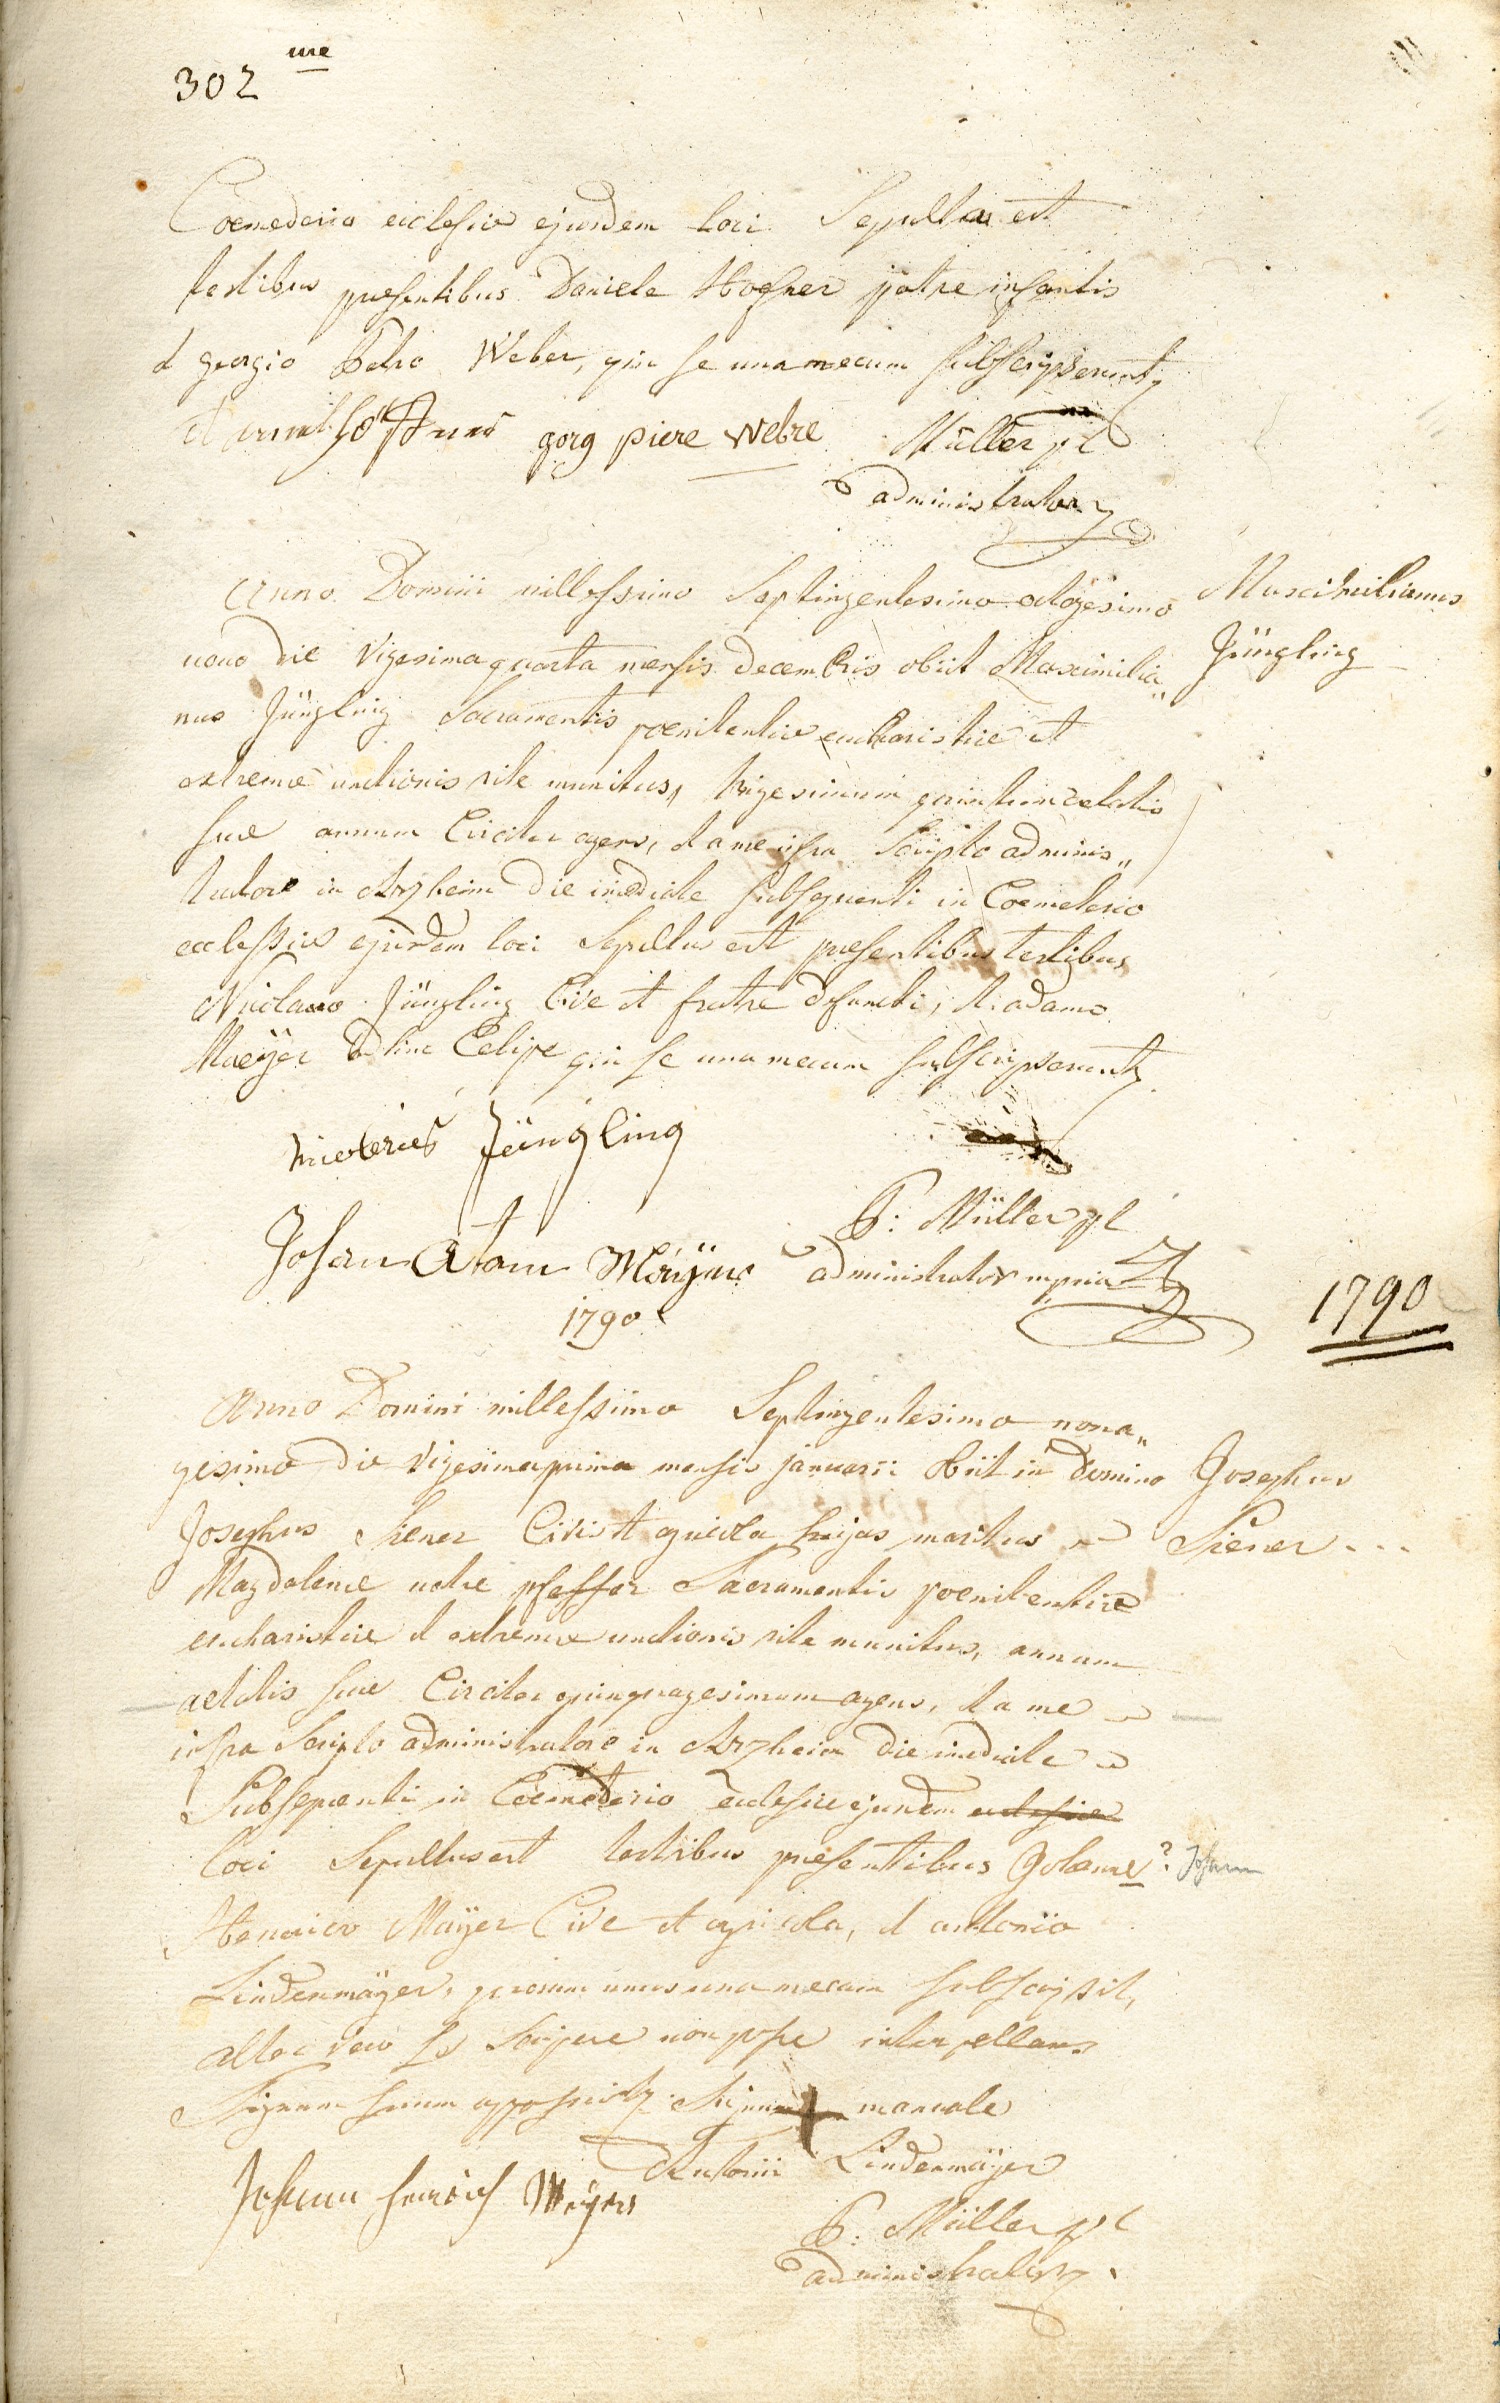 302 me
Coemederio ecclesiæ ejusdem loci Sepulta est
testibus præsentibus Daniele Hoefner patre infantis
et georgio Petro Weber, qui se una mecum subscripserunt
gorg piere webre Müller pl
administrator
Anno Domini millessimo Septingentesimo octogesimo
Maximilianus
nono die vigesima quarta mensis decembris obiit Maximilia„
Jüngling
nus Jüngling Sacramentis poenitentiæ eucharistiæ et
extremæ unctionis rite munitus, trigesimum quintum ætatis
suæ annum Circiter agens, et a me infra Scripto adminis„
tratore in Arzheim die imediate subsequenti in Coemeterio
ecclessiæ ejusdem loci Sepultus est præsentibus testibus
Nicolao Jüngling Cive et fratre defuncti, et adamo
Maeÿer qui se una mecum subscripserunt
Jüngling
P: Müller pl
Johan Atam Meiÿer administrator mpria
1790
1790
Anno Domini millessimo Septingentesimo nona„
gesimo die vigesima prima mensis januarii obiit in domino
Josephus
Josephus Siener Civis et agricola hujas maritus
Siener ...
Magdalenæ natæ pfeffer Sacramentis poenitentiæ
eucharistiæ et extremæ unctionis rite munitus, annum
aetatis suæ Circiter quinquagesimum agens, et a me
infra Scripto administratore in Arzheim die imediate
Subsequenti in Coemeterio ecclesiæ ejusdem ecclesiæ
loci Sepultus est testibus præsentibus Joanne ? Johann
Henrico Maÿer Cive et agricola, et antonio
Lindenmaÿer, quorum unus una mecum subscripsit,
alter vero se Scripere non posse interpellans
Signum suum apposuit Signum + manuale
Antonii Lindenmaÿer
Johann heinrich Meÿer
P: Müller pl
administrator